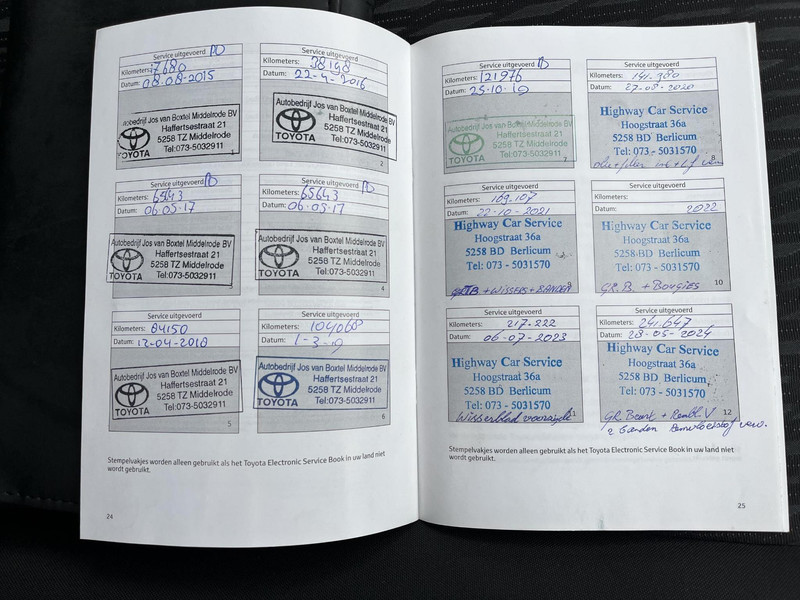 Service uitgevoerd PO
Kilometers: 17680
Datum: 08-08-2015
Autobedrijf Jos van Boxtel Middelrode BV
Haffertsestraat 21
5258 TZ Middelrode
Tel:073-5032911
TOYOTA
1
Service uitgevoerd
Kilometers: 38148
Datum: 22-4-2016
Autobedrijf Jos van Boxtel Middelrode BV
Haffertsestraat 21
5258 TZ Middelrode
Tel:073-5032911
TOYOTA
2
Service uitgevoerd PO
Kilometers: 65643
Datum: 06-05-17
Autobedrijf Jos van Boxtel Middelrode BV
Haffertsestraat 21
5258 TZ Middelrode
Tel:073-5032911
TOYOTA
3
Service uitgevoerd
Kilometers: 65643
Datum: 06-05-17
Autobedrijf Jos van Boxtel Middelrode BV
Haffertsestraat 21
5258 TZ Middelrode
Tel:073-5032911
TOYOTA
4
Service uitgevoerd
Kilometers: 84150
Datum: 12-04-2018
Autobedrijf Jos van Boxtel Middelrode BV
Haffertsestraat 21
5258 TZ Middelrode
Tel:073-5032911
TOYOTA
5
Service uitgevoerd
Kilometers: 104068
Datum: 1-3-19
Autobedrijf Jos van Boxtel Middelrode BV
Haffertsestraat 21
5258 TZ Middelrode
Tel:073-5032911
TOYOTA
6
Stempelvakjes worden alleen gebruikt als het Toyota Electronic Service Book in uw land niet
wordt gebruikt.
24
Service uitgevoerd
Kilometers: 121976
Datum: 25-10-19
Autobedrijf Jos van Boxtel Middelrode BV
Haffertsestraat 21
5258 TZ Middelrode
Tel:073-5032911
TOYOTA
7
Service uitgevoerd
Kilometers: 141.380
Datum: 27-08-2020
Highway Car Service
Hoogstraat 36a
5258 BD Berlicum
Tel: 073 - 5031570
8
Service uitgevoerd
Kilometers: 169.107
Datum: 22-10-2021
Highway Car Service
Hoogstraat 36a
5258 BD Berlicum
Tel: 073 - 5031570
+ WISSERS + BANDEN
Service uitgevoerd
Kilometers:
Datum: 2022
Highway Car Service
Hoogstraat 36a
5258 BD Berlicum
Tel: 073 - 5031570
GR.B. + Bougies
10
Service uitgevoerd
Kilometers: 217-222
Datum: 06-07-2023
Highway Car Service
Hoogstraat 36a
5258 BD Berlicum
Tel: 073 - 5031570
Wisserblad voorzijde
11
Service uitgevoerd
Kilometers: 241.647
Datum: 28-05-2024
Highway Car Service
Hoogstraat 36a
5258 BD Berlicum
Tel: 073 - 5031570
GR Beurt + Rembl. V
12
2 banden Remvloeistof verv.
Stempelvakjes worden alleen gebruikt als het Toyota Electronic Service Book in uw land niet
wordt gebruikt.
25